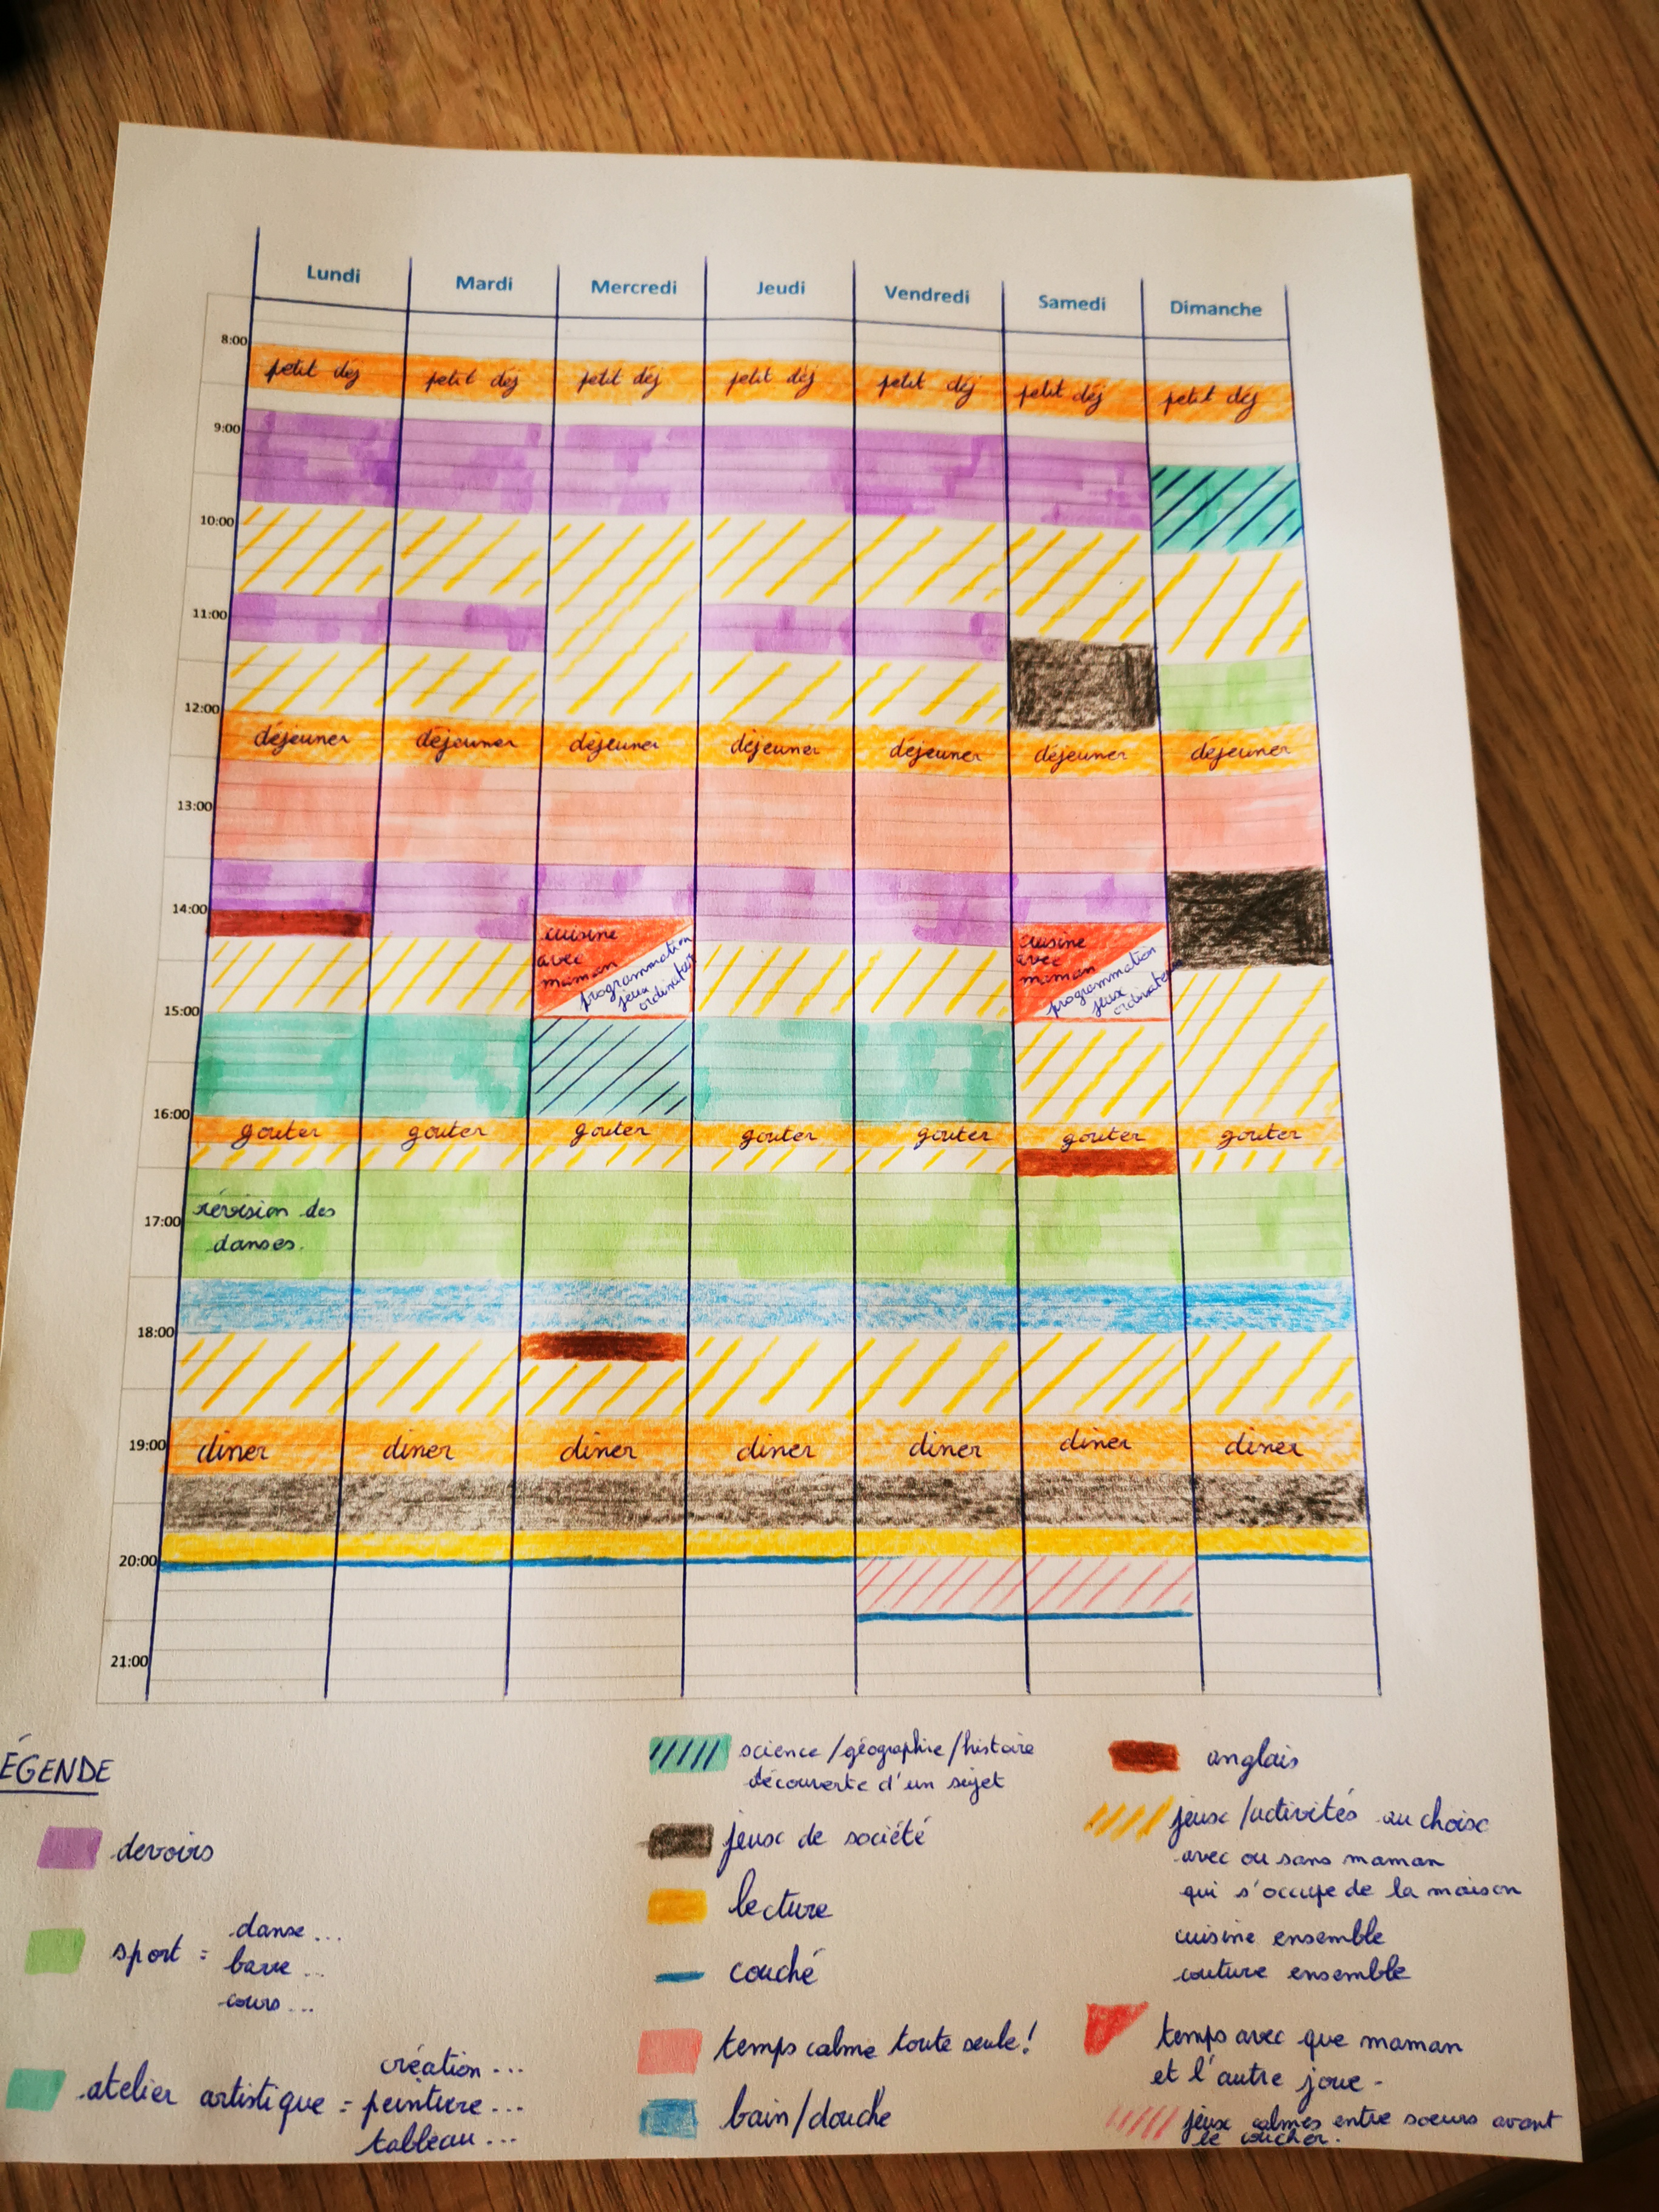 Lundi Mardi Mercredi Jeudi Vendredi Samedi Dimanche
8:00
petit déj petit déj petit déj petit déj petit déj petit déj petit déj
9:00
10:00
11:00
12:00
déjeuner déjeuner déjeuner déjeuner déjeuner déjeuner déjeuner
13:00
14:00
cuisine avec maman programmation jeux ordinateur
cuisine avec maman programmation jeux ordinateur
15:00
16:00
gouter gouter gouter gouter gouter gouter gouter
révision des
17:00
danses.
18:00
19:00 diner diner diner diner diner diner diner
20:00
21:00
ÉGENDE
devoirs
sport = danse...
barre...
cours...
atelier artistique = création...
peinture...
tableau...
science/géographie/histoire
découverte d'un sujet
jeux de société
lecture
couché
temps calme toute seule!
bain/douche
anglais
jeux/activités au choix
avec ou sans maman
qui s'occupe de la maison
cuisine ensemble
couture ensemble
temps avec que maman
et l'autre joue -
jeux calmes entre soeurs avant
le coucher.